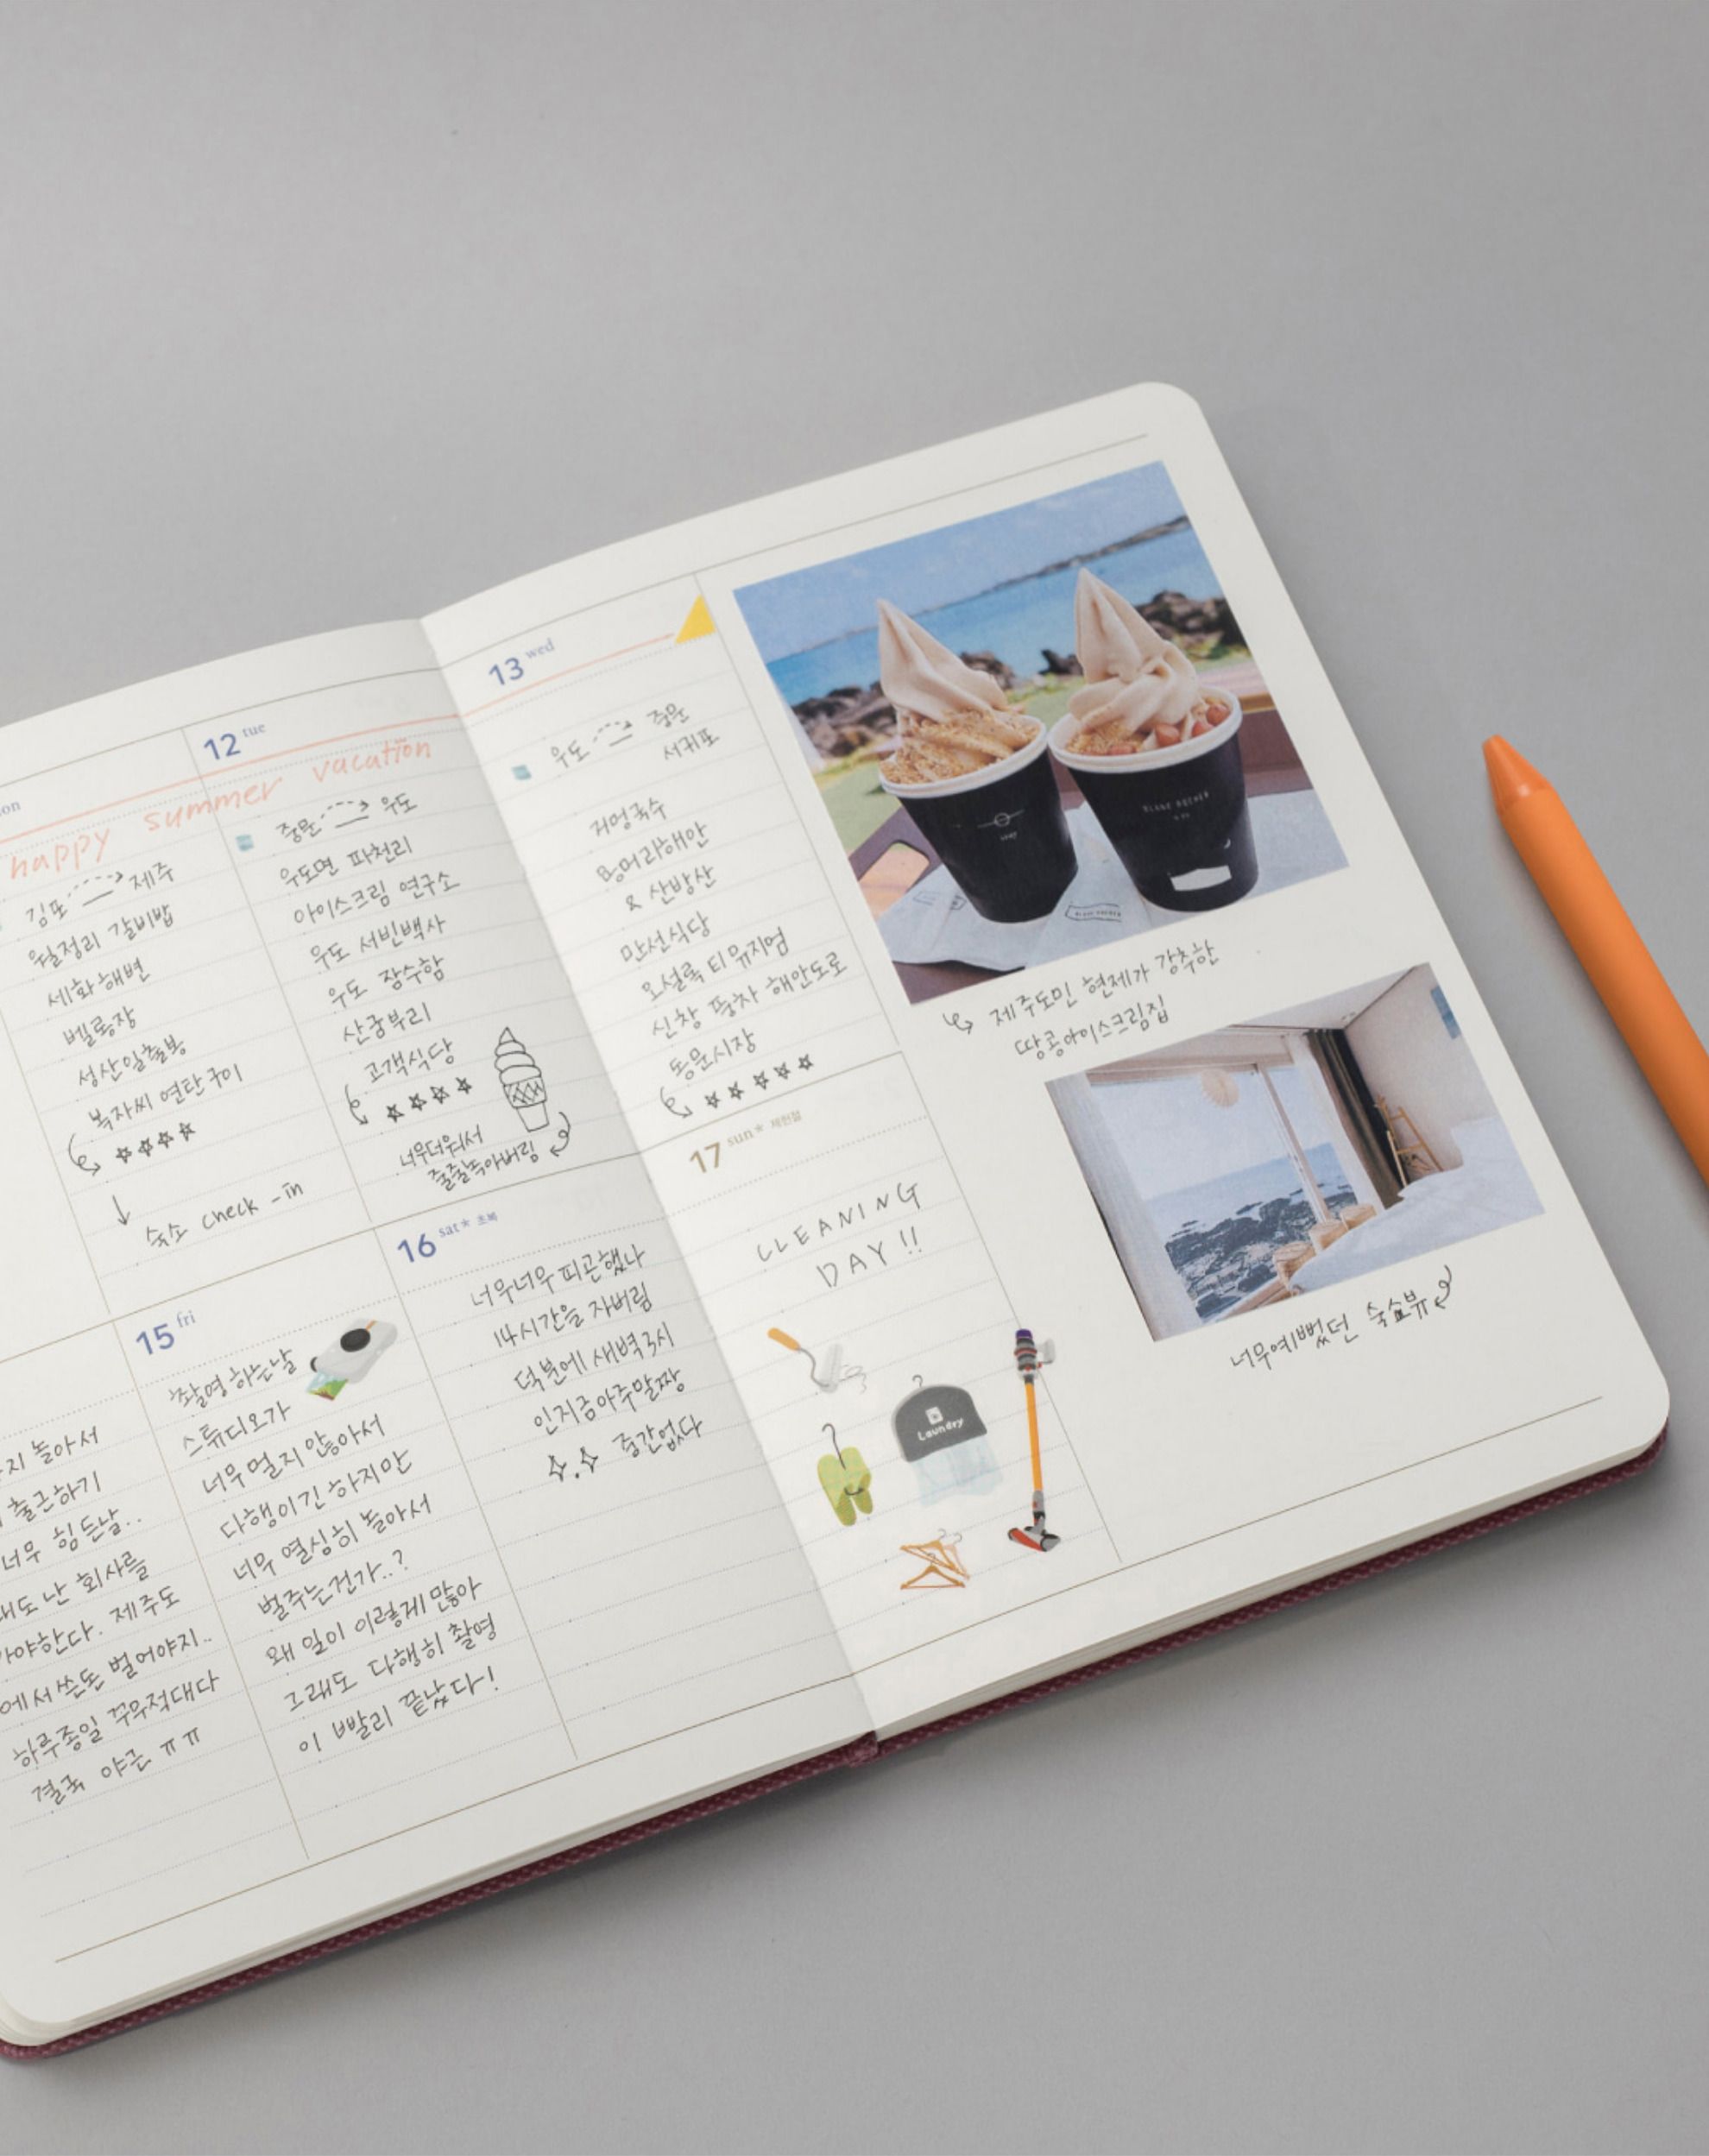 happy summer vacation
김포 제주
월정리 갈비밥
세화해변
벨롱장
성산일출봉
복자씨 연탄구이
숙소 check-in
12 tue
중문 우도
우도면 파전리
아이스크림 연구소
우도 서빈백사
우도 잠수함
산굼부리
고객식당
너무더워서
줄줄녹아버림
13 wed
우도 중문
서귀포
거멍국수
용머리해안
& 산방산
만선식당
오설록 티 뮤지엄
신창 풍차 해안도로
동문시장
놀아서
출근하기
너무 힘든날..
난 회사를
제주도
에서 쓴돈 벌어야지..
하루종일 꾸무적대다
결국 야근 ㅠㅠ
15 fri
촬영 하는날
스튜디오가
너무 멀지 않아서
다행이긴 하지만
너무 열심히 놀아서
벌주는건가..?
왜 일이 이렇게 많아
그래도 다행히 촬영
이 빨리 끝났다!
16 sat* 초복
너무너무 피곤했나
14시간을 자버림
덕분에 새벽3시
인지금아주말짱
중간없다
17 sun* 제헌절
CLEANING
DAY!!
Laundry
BLANC ROCHER
제주도민 현제가 강추한
땅콩아이스크림집
너무예뻤던 숙소뷰